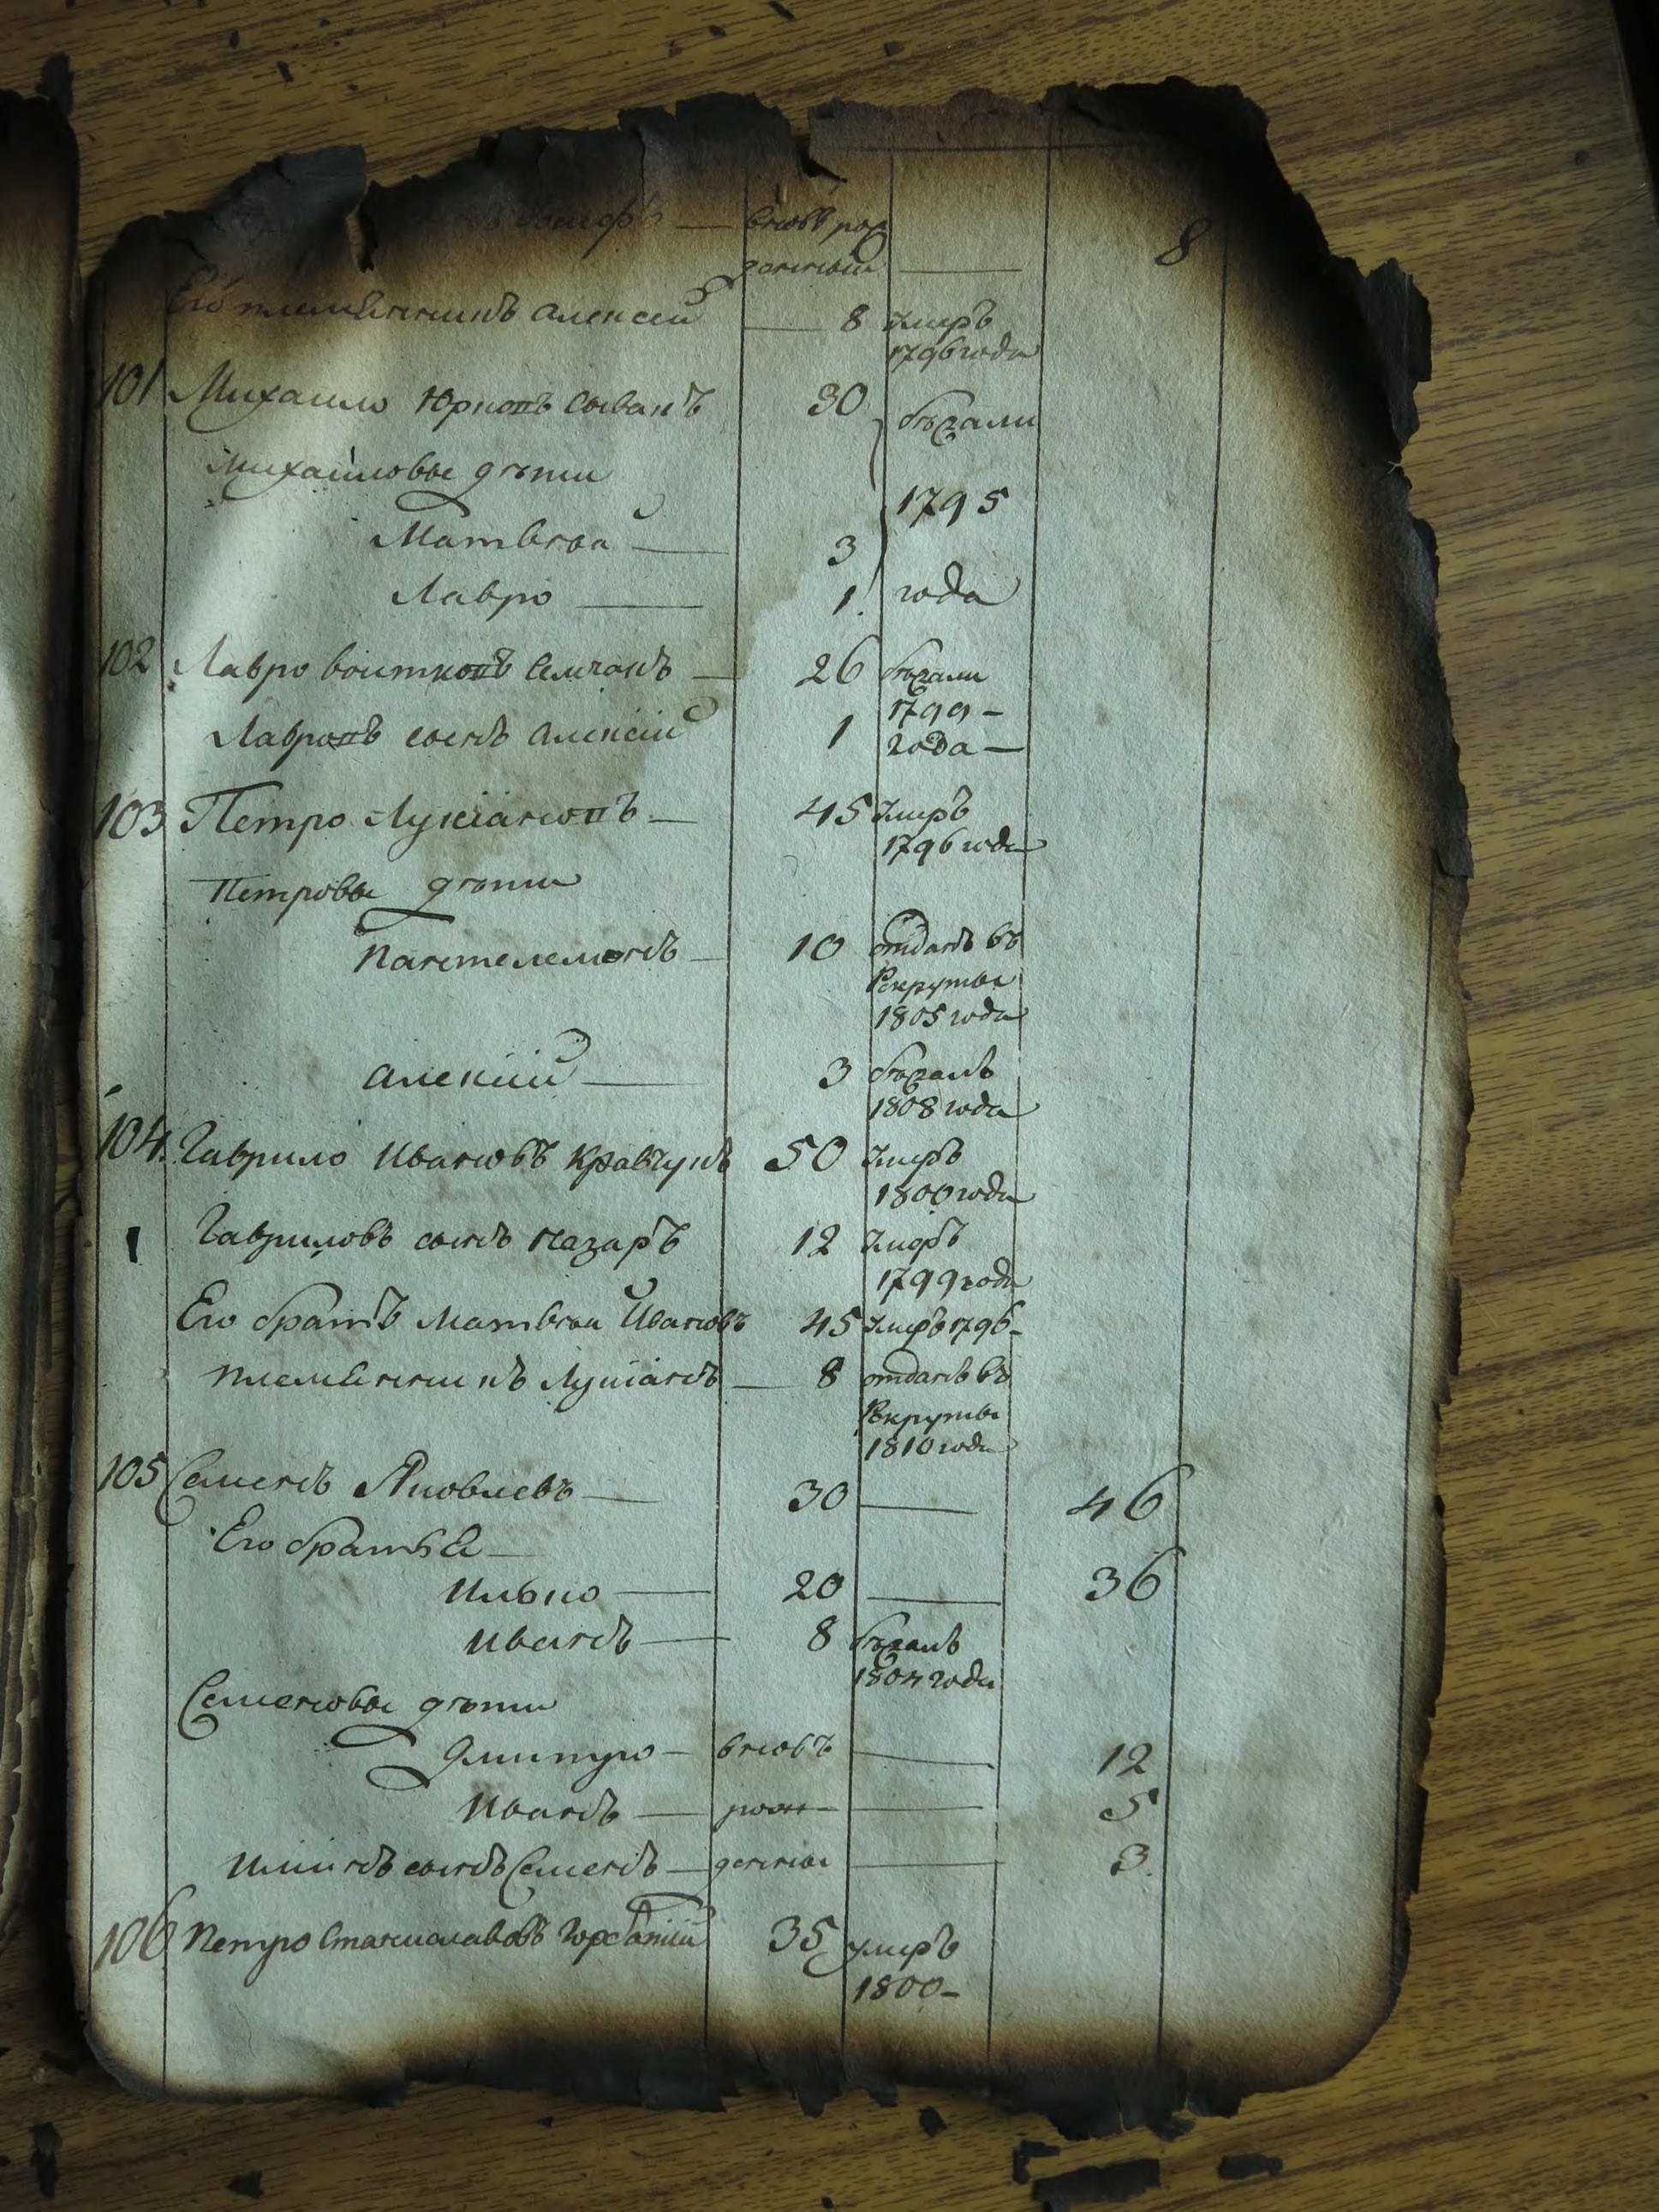 вновь рож
денный — 8
Его племянникъ Алексей — 8 умръ
1796 года
101 Михайло Юрковъ 30 бѣжали
Михайловы дѣти
1795
Матвѣй — 3
Лавро — 1 года
102 Лавро Войтковъ — 26 бѣжали
1799 —
Лавровъ сынъ Алексiй 1 года —
103 Петро Лукiановъ — 45 умръ
1796 года
Петровы дѣти
Пантелемонъ — 10 отданъ въ
Рекруты
1805 года
Алексiй — 3 бѣжалъ
1808 года
104. Гаврило Ивановъ Кравчукъ 50 умръ
1800 года
Гавриловъ сынъ Назаръ 12 умръ
1799 года
Его братъ Матвѣй Ивановъ 45 умръ 1796 —
племянникъ Лукiанъ — 8 отданъ въ
Рекруты
1810 года
105 Семенъ Яковлевъ — 30 — 46
Его братья —
Илько — 20 — 36
Иванъ — 8 бѣжалъ
1804 года
Семеновы дѣти
Дмитро — вновь — 12
Иванъ — рож — 5
сынъ Семенъ — денные — 3.
106 Петро Станиславовъ 35 умръ
1800 —